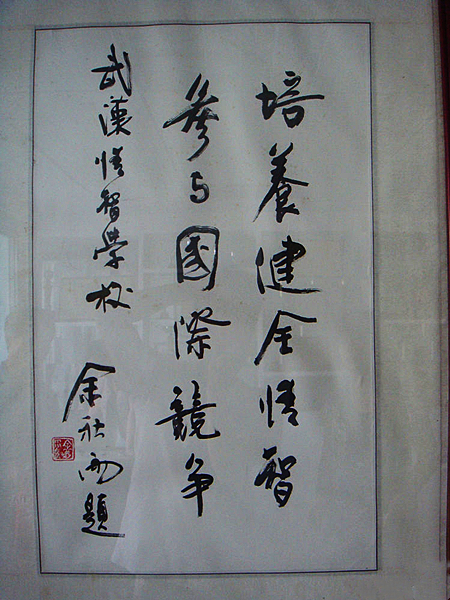 培養健全情智
參与國際競争
武漢情智學校
余秋雨題